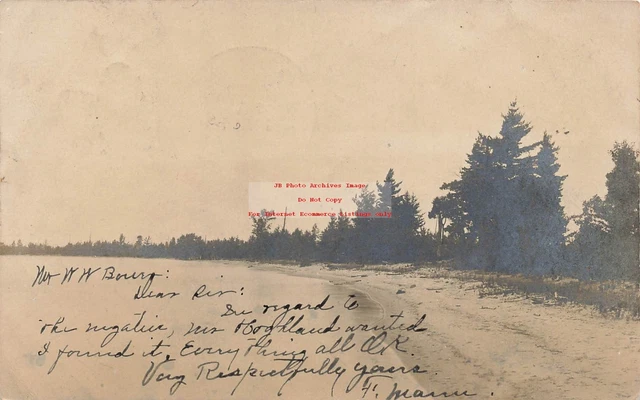 JB Photo Archives Image
Do Not Copy
For Internet Ecommerce Listings only
Mr W W Bowers:
Dear Sir:
In regard to
the negative, Mr Hoghland wanted
I found it, Every thing all O.K.
Very Respectfully yours
F. Mann.